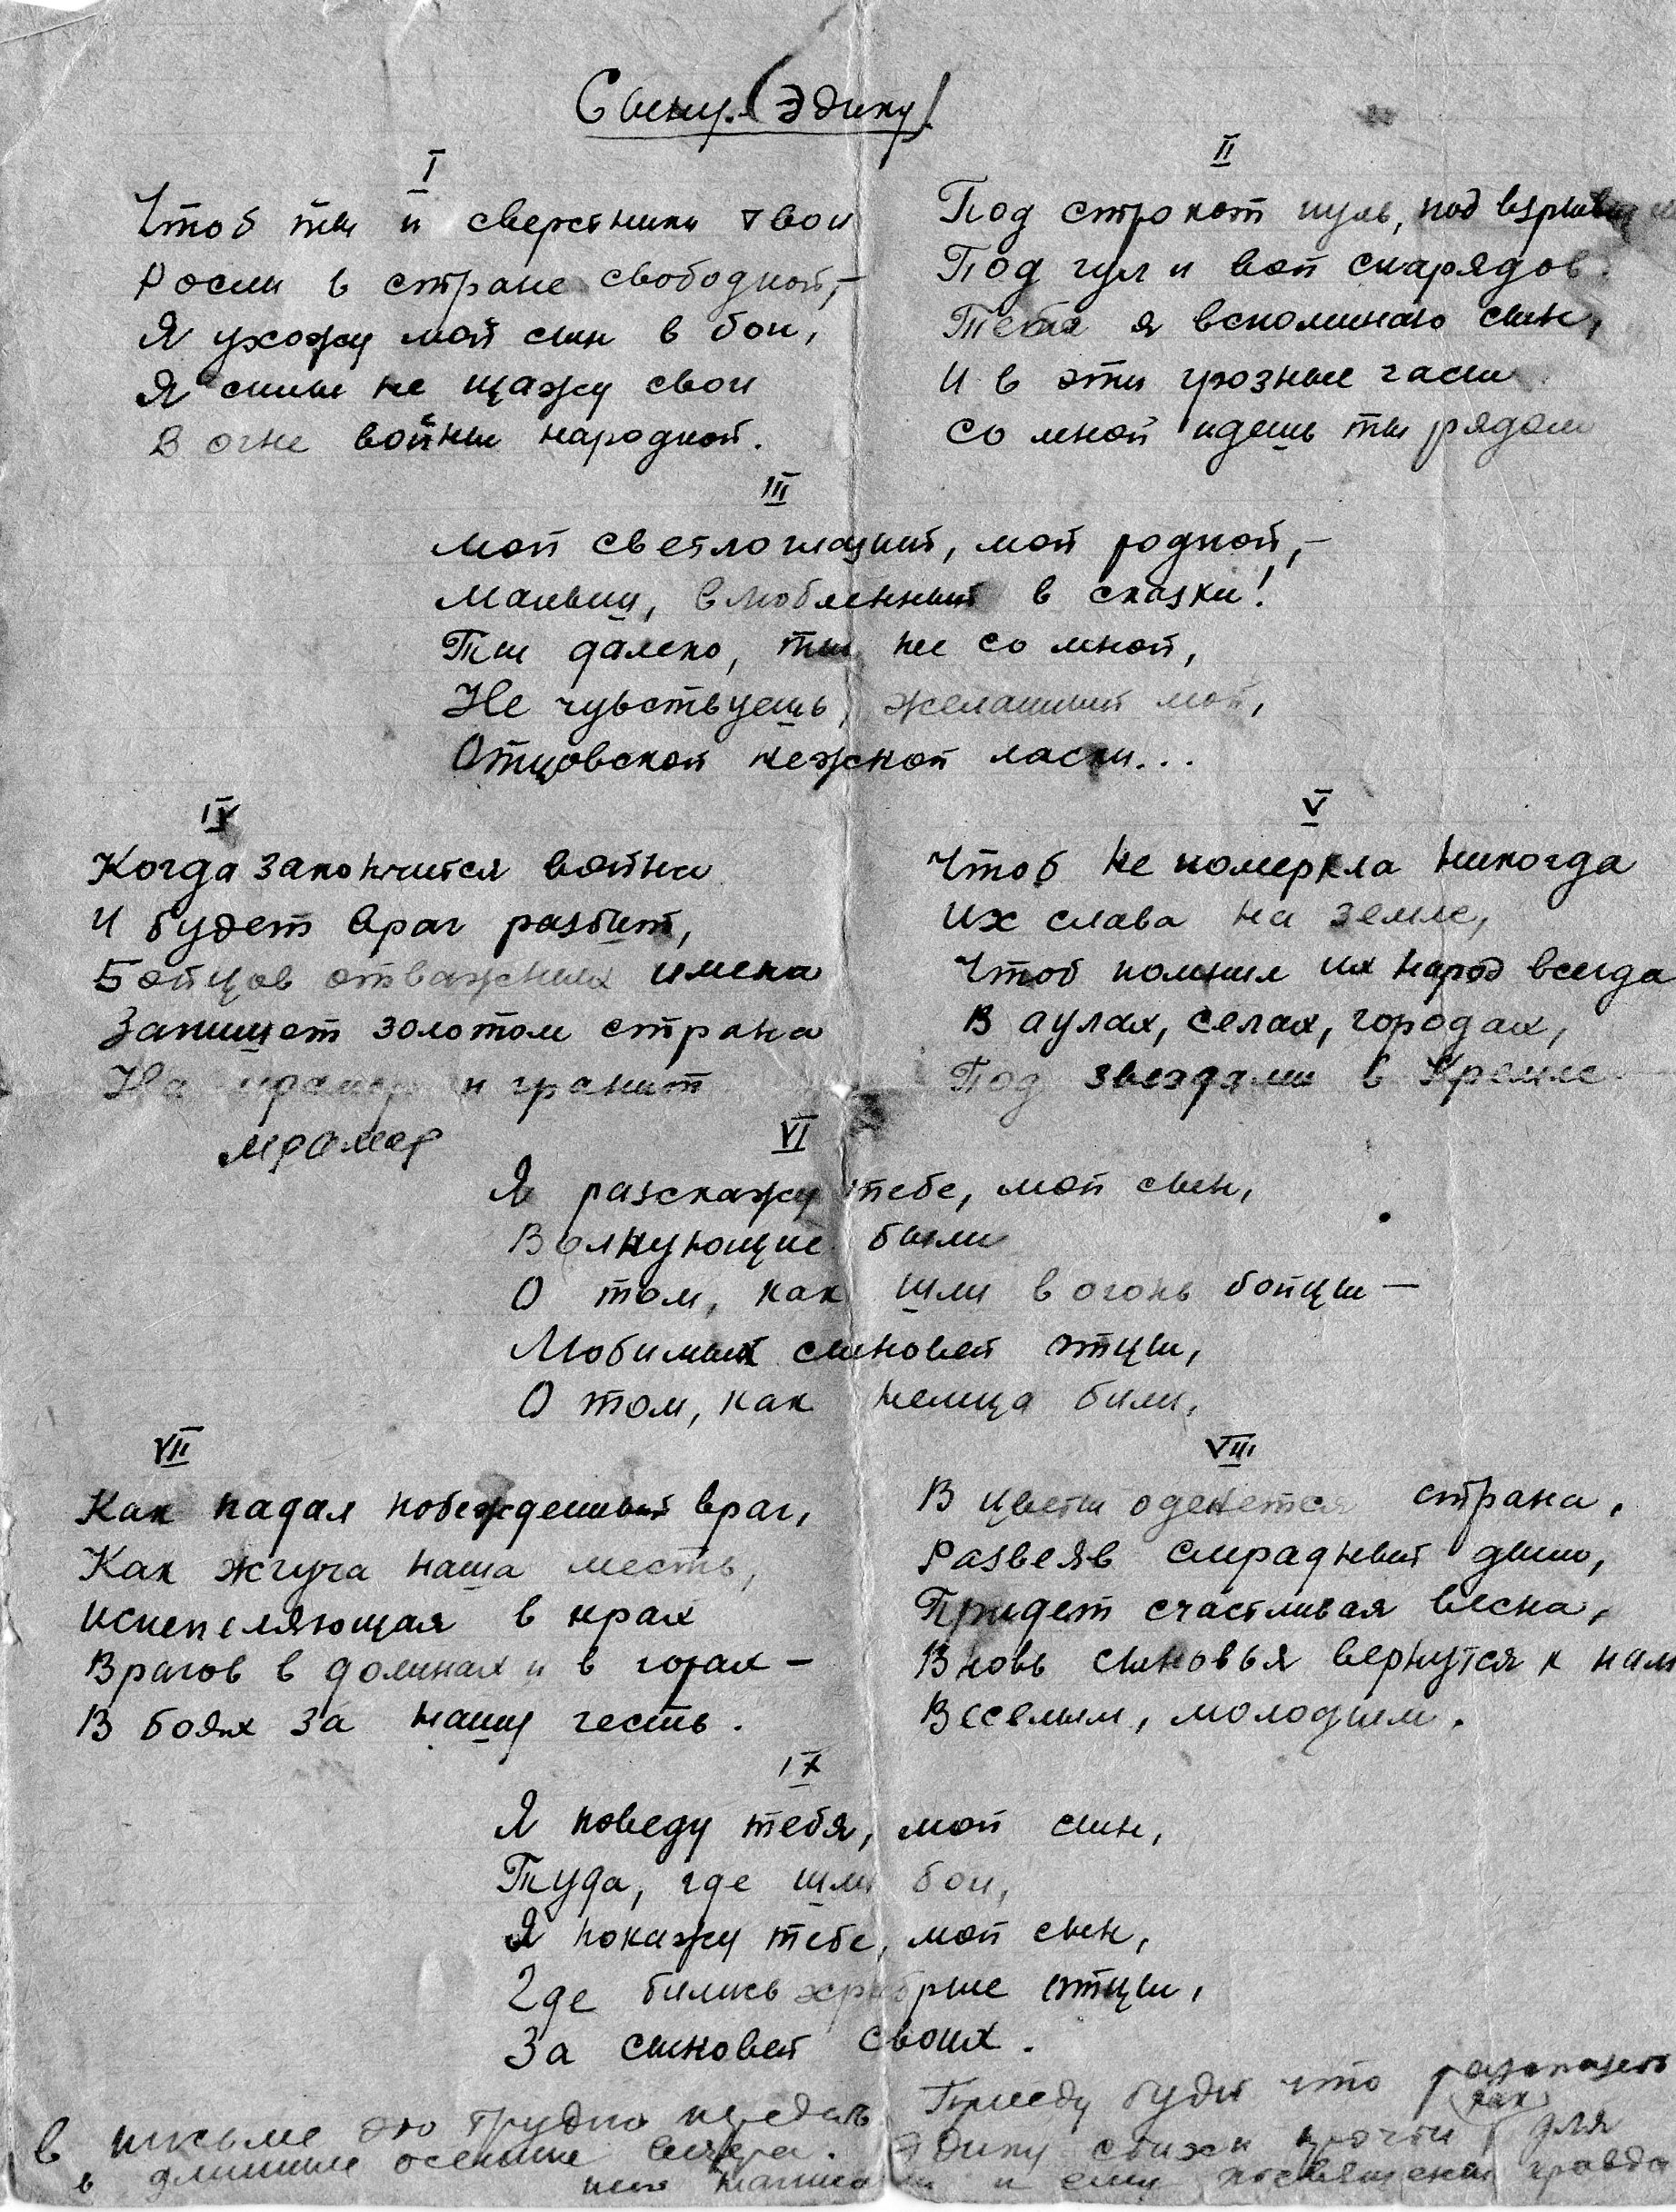 Сыну. (Эдику)
I
Чтоб ты и сверстники твои
Росли в стране свободной,–
Я ухожу мой сын в бои,
Я силы не щажу свои
В огне войны народной.
II
Под строкот пуль, под взрывы
Под гул и вой снарядов.
Тебя я вспоминаю сын,
И в эти грозные часы
Со мной идешь ты рядом
III
Мой светлоглазый, мой родной,–
Малыш, влюбленный в сказки!
Ты далеко, ты не со мной,
Не чувствуешь, желанный мой,
Отцовской нежной ласки...
IV
Когда закончится война
И будет враг разбит,
Бойцов отважных имена
Запишет золотом страна
На мрамор и гранит
мрамор
V
Чтоб не померкла никогда
Их слава на земле,
Чтоб помнил их народ всегда
В аулах, селах, городах,
Под звездами в Кремле
VI
Я разскажу тебе, мой сын,
Волнующие были
О том, как шли в огонь бойцы –
Любимых сыновей отцы,
О том, как немца били,
VII
Как падал побежденный враг,
Как жгуча наша месть,
Испепеляющая в прах
Врагов в долинах и в горах –
В боях за нашу честь.
VIII
В цветы оденется страна,
Развеяв смрадный дым,
Придет счастливая весна,
Вновь сыновья вернутся к нам
Веселым, молодым.
IX
Я поведу тебя, мой сын,
Туда, где шли бои,
Я покажу тебе, мой сын,
Где бились храбрые отцы,
За сыновей своих.
Приеду будет что разсказать
в письме это трудно передать
в длинные осенние вечера. Эдику стихи прочти для
и ему посвящены правда